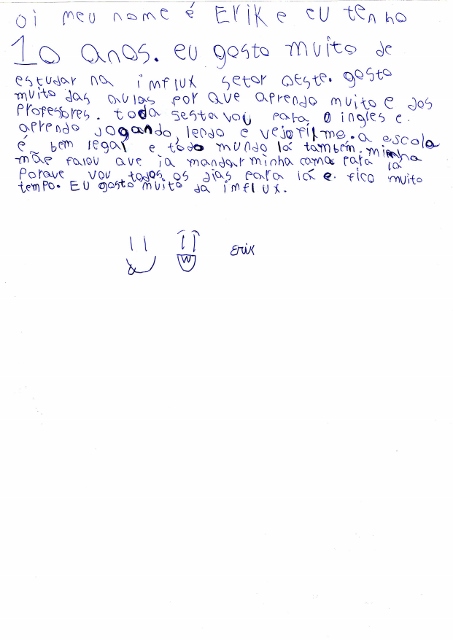 oi meu nome é Erik e eu tenho
10 anos. eu gosto muito de
estudar na influx setor oeste. gosto
muito das aulas por que aprendo muito e dos
professores. toda sesta vou para o ingles e
aprendo jogando, lendo e vejo filme. a escola
é bem legal e todo mundo lá também. minha
mãe falou que ia mandar minha cama para lá
porque vou todos os dias para lá e fico muito
tempo. Eu gosto muito da influx.
Erik